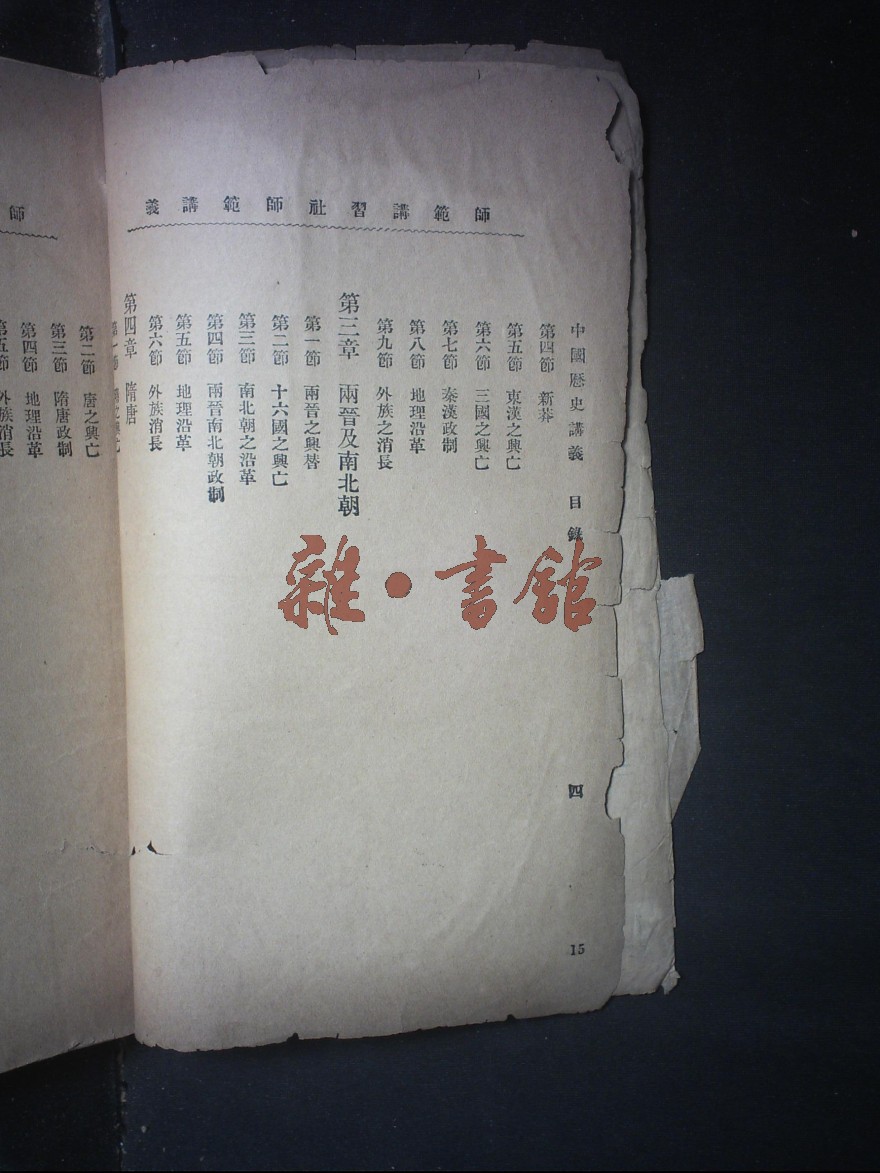 師範講習社師範講義
中國歷史講義 目錄
四
15
第四節 新莽
第五節 東漢之興亡
第六節 三國之興亡
第七節 秦漢政制
第八節 地理沿革
第九節 外族之消長
第三章 兩晉及南北朝
第一節 兩晉之興替
第二節 十六國之興亡
第三節 南北朝之沿革
第四節 兩晉南北朝政制
第五節 地理沿革
第六節 外族消長
第四章 隋唐
師
第二節 唐之興亡
第三節 隋唐政制
第四節 地理沿革
第五節 外族消長
雜·書館